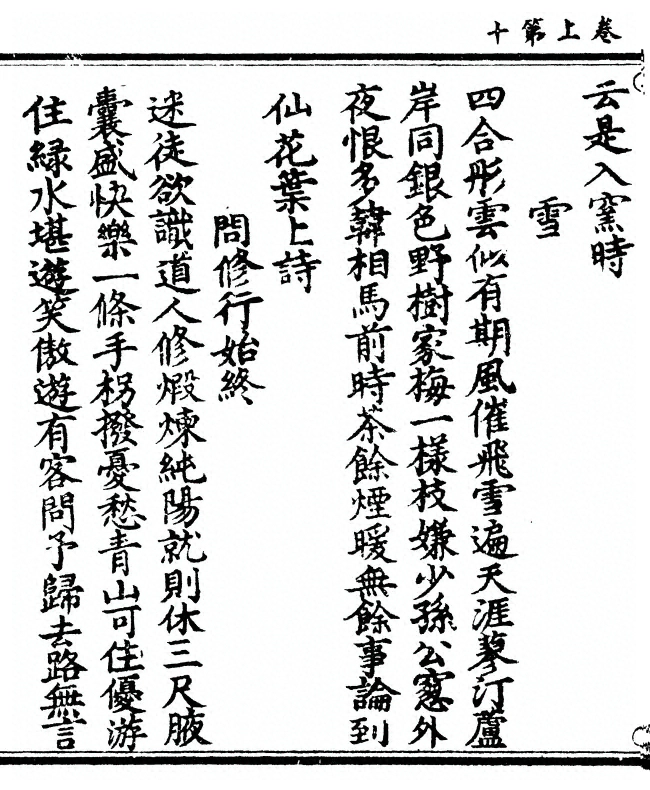 卷上第十
云是入窯時
雪
四合彤雲似有期風催飛雪遍天涯蓼汀蘆
岸同銀色野樹家梅一樣枝嫌少孫公窻外
夜恨多韓相馬前時茶餘煙暖無餘事論到
仙花葉上詩
問修行始終
迷徒欲識道人修煆煉純陽就則休三尺腋
囊盛快樂一條手柺撥憂愁青山可住優游
住綠水堪遊笑傲遊有客問予歸去路無言